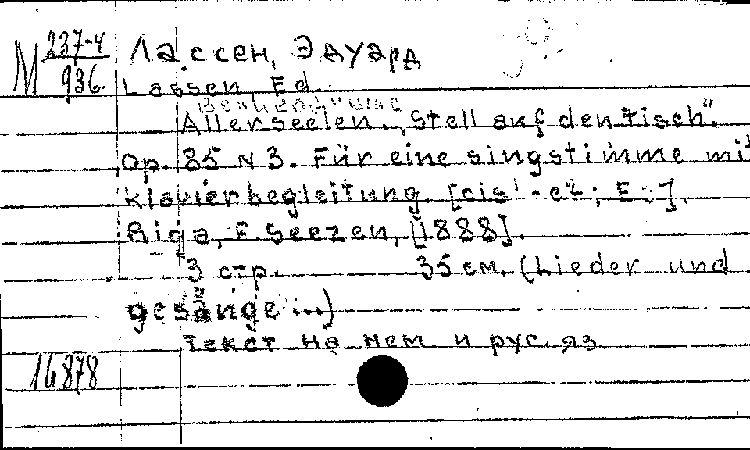 M 237-4
936
Лассен, Эдуард
Lassen, Ed.
Allerseelen. „Stell auf den tisch".
op. 85 N 3. Für eine singstimme mit
klavierbegleitung. [cis' - e2; E:].
Riga, P. Seezen, [1888].
3 стр. 35 см. (Lieder und
gesänge ...)
Текст на нем и рус. яз
16878